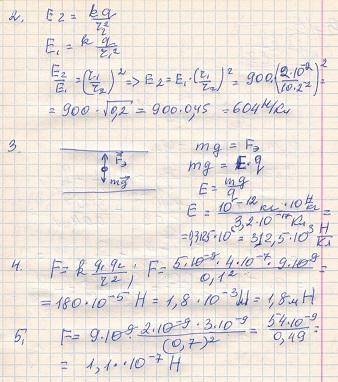 2, E2 = kq/r2²
E1 = k q/r1²
E2/E1 = (r1/r2)² => E2 = E1·(r1/r2)² = 900·(2·10⁻²/10·2⁻²)² =
= 900·√0,2 = 900·0,45 = 604 Н/Кл
3. mg = Fэ
Fэ mg = E·q
mg E = mg/q
E = 10⁻¹² кг · 10 Н/кг / 3,2·10⁻¹⁷ Кл =
= 0,3125·10⁶ = 312,5·10³ Н/Кл
4. F = k q1q2/r²; F = 5·10⁻⁹·4·10⁻⁷·9·10⁹/0,1² =
= 180·10⁻⁵ Н = 1,8·10⁻³ Н = 1,8 мН
5, F = 9·10⁹· 2·10⁻⁹·3·10⁻⁹/(0,7)² = 54·10⁻⁹/0,49 =
= 1,1·10⁻⁷ Н